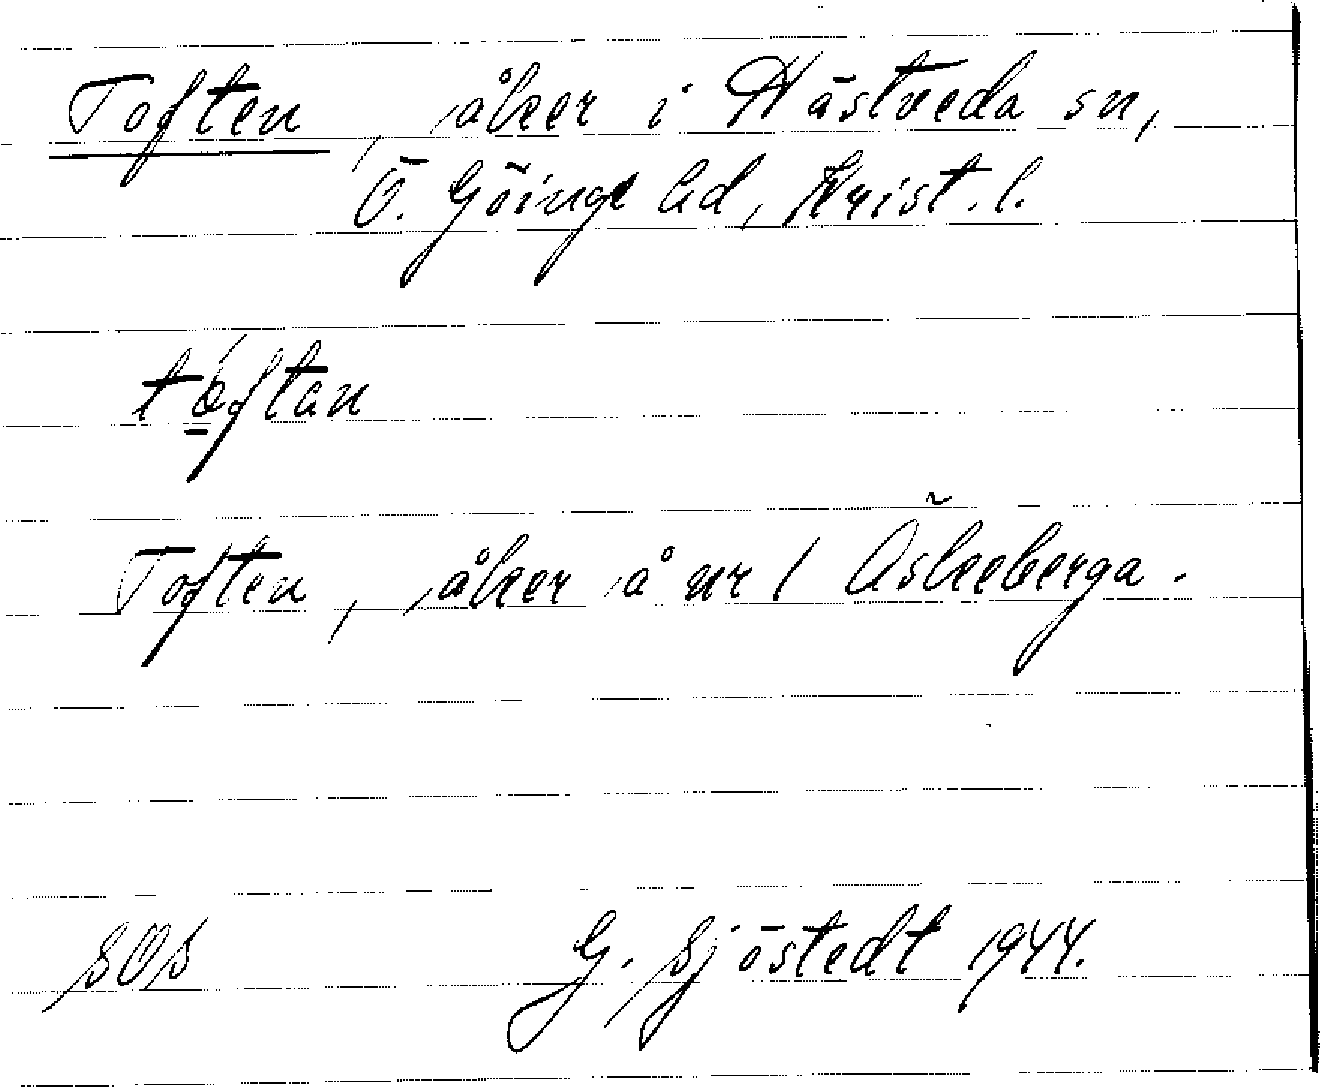 Toften, åker i Hästveda sn,
Ö. Göinge hd, Krist. l.
tóftan
Toften, åker å nr 1 Äskeberga.
SOS G. Sjöstedt 1944.